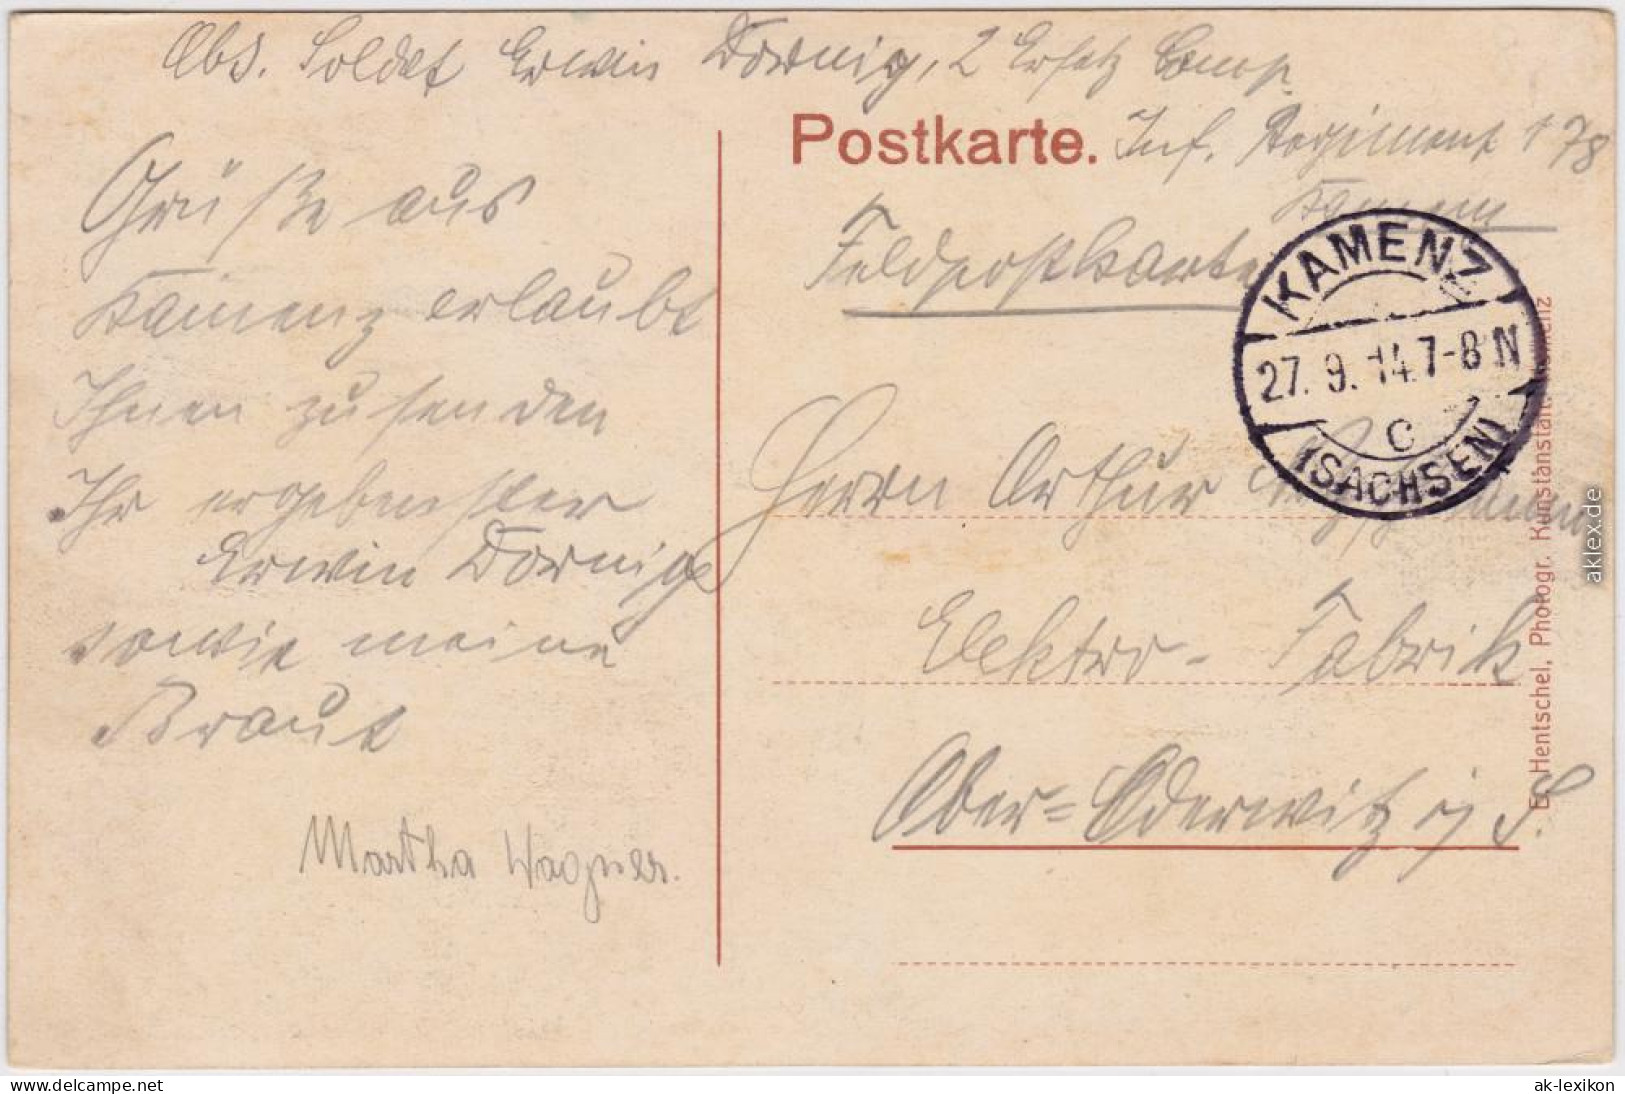 Abs. Soldat Erwin Dornig, 2 Ersatz Comp.
Postkarte. Inf. Regiment 178
Kamenz
Feldpostkarte
KAMENZ
27. 9. 14. 7-8 N
C
(SACHSEN)
Grüße aus
Kamenz erlaubt
Ihnen zu senden
Ihr ergebenster
Erwin Dornig
sowie meine
Braut
Martha Wagner.
Herrn Arthur
Elektro- Fabrik
Ober= Oderwitz i/ S.
E. Hentschel, Photogr. Kunstanstalt
aklex.de
www.delcampe.net
ak-lexikon